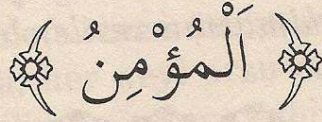 ﴿ اَلْمُؤْمِنُ ﴾